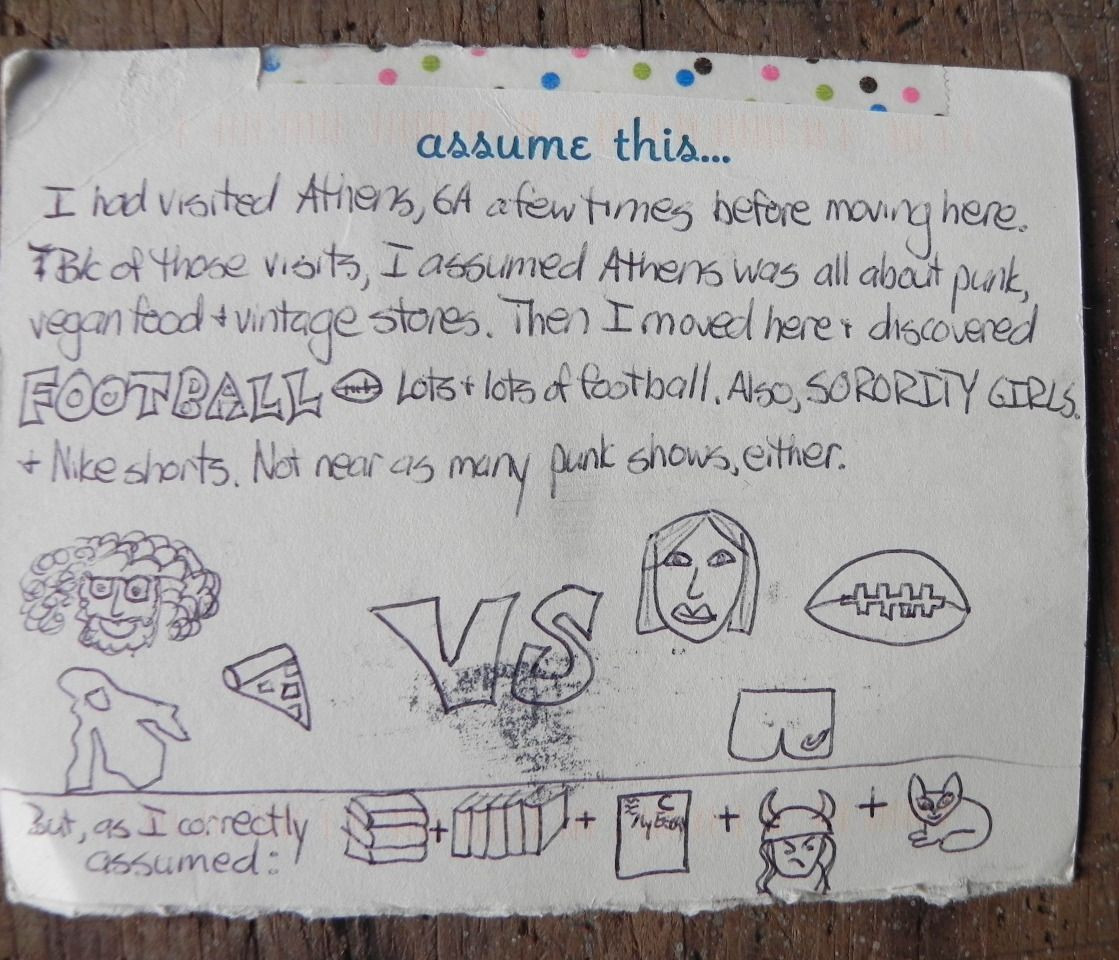 assume this...
I had visited Athens, GA a few times before moving here.
B/c of those visits, I assumed Athens was all about punk,
vegan food + vintage stores. Then I moved here + discovered
FOOTBALL Lots + lots of football. Also, SORORITY GIRLS.
+ Nike shorts. Not near as many punk shows, either.
VS
But, as I correctly
assumed:
+ + C + +
My Essay